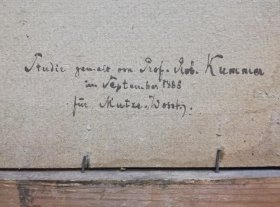 Studie gemalt von Prof. Rob. Kummer
im September 1888
für Mutze-Wossky.